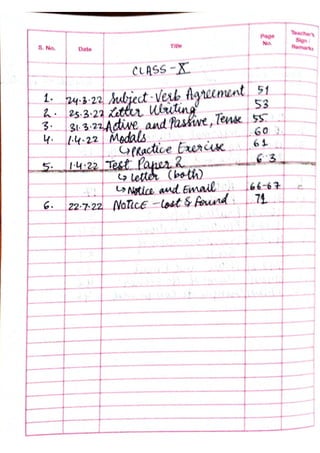 S. No. Date Title Page No. Teacher's Sign / Remarks
CLASS-X
1. 24.3.22 Subject-Verb Agreement 51
2. 25.3.22 Letter Writing 53
3. 31.3.22 Active and Passive, Tense 55
4. 1.4.22 Modals 60
↳ Practice Exercise 61
5. 1.4.22 Test Paper 2 63
↳ Letter (both)
↳ Notice and Email 66-67
6. 22.7.22 NOTICE - Lost & Found. 71